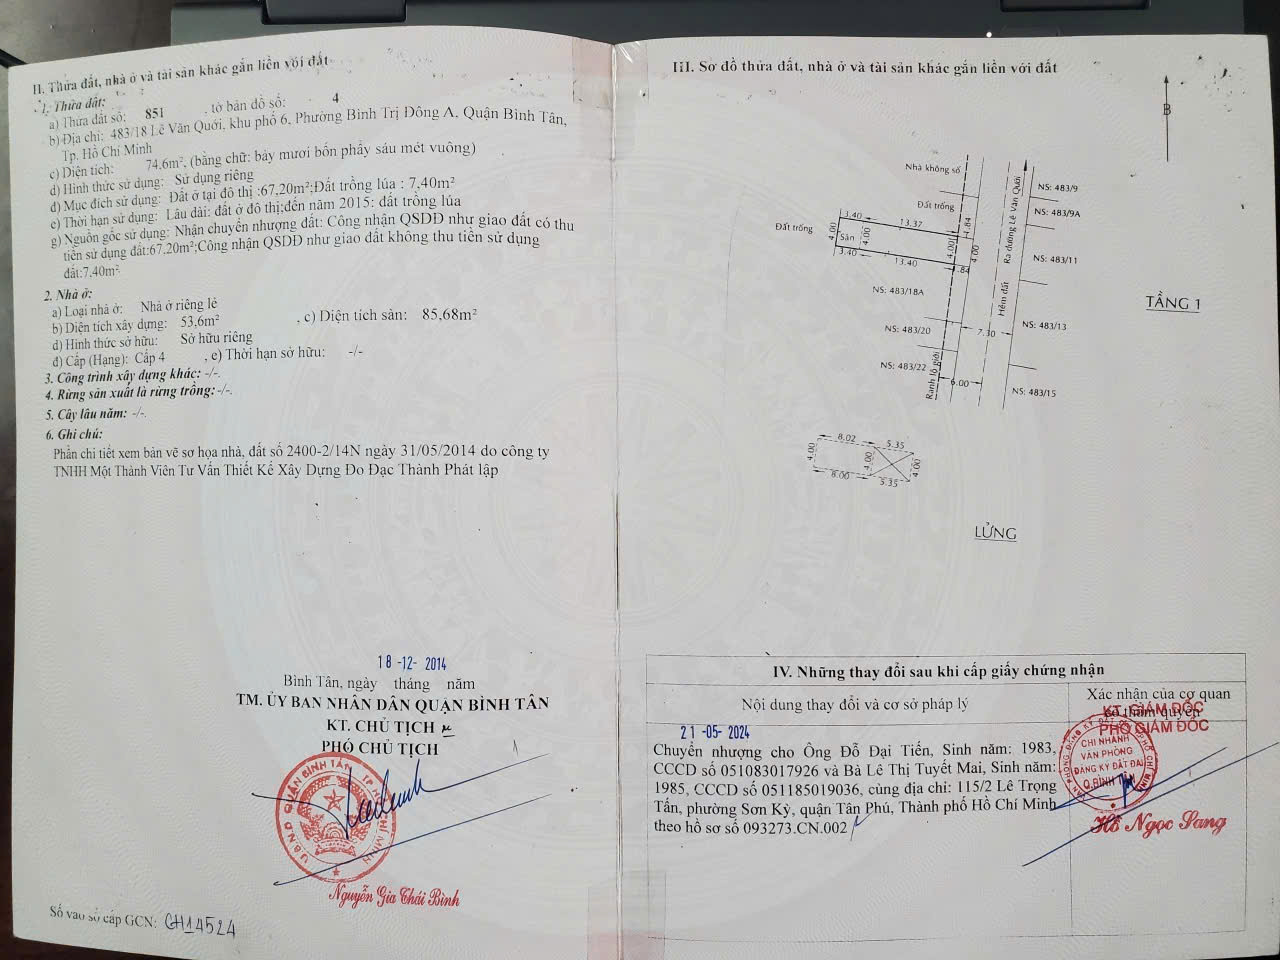 II. Thửa đất, nhà ở và tài sản khác gắn liền với đất
1. Thửa đất:
a) Thửa đất số: 851 , tờ bản đồ số: 4
b) Địa chỉ: 483/18 Lê Văn Quới, khu phố 6, Phường Bình Trị Đông A, Quận Bình Tân,
Tp. Hồ Chí Minh
c) Diện tích: 74,6m², (bằng chữ: bảy mươi bốn phẩy sáu mét vuông)
d) Hình thức sử dụng: Sử dụng riêng
đ) Mục đích sử dụng: Đất ở tại đô thị :67,20m²;Đất trồng lúa : 7,40m²
e) Thời hạn sử dụng: Lâu dài: đất ở đô thị;đến năm 2015: đất trồng lúa
g) Nguồn gốc sử dụng: Nhận chuyển nhượng đất: Công nhận QSDĐ như giao đất có thu
tiền sử dụng đất:67,20m²;Công nhận QSDĐ như giao đất không thu tiền sử dụng
đất:7,40m²
2. Nhà ở:
a) Loại nhà ở: Nhà ở riêng lẻ
b) Diện tích xây dựng: 53,6m² , c) Diện tích sàn: 85,68m²
d) Hình thức sở hữu: Sở hữu riêng
đ) Cấp (Hạng): Cấp 4 , e) Thời hạn sở hữu: -/-
3. Công trình xây dựng khác: -/-.
4. Rừng sản xuất là rừng trồng: -/-.
5. Cây lâu năm: -/-.
6. Ghi chú:
Phần chi tiết xem bản vẽ sơ họa nhà, đất số 2400-2/14N ngày 31/05/2014 do công ty
TNHH Một Thành Viên Tư Vấn Thiết Kế Xây Dựng Đo Đạc Thành Phát lập
18 -12- 2014
Bình Tân, ngày tháng năm
TM. ỦY BAN NHÂN DÂN QUẬN BÌNH TÂN
KT. CHỦ TỊCH
PHÓ CHỦ TỊCH
U.B.N.D QUẬN BÌNH TÂN T.P HỒ CHÍ MINH
Nguyễn Gia Thái Bình
Số vào sổ cấp GCN: CH14524
III. Sơ đồ thửa đất, nhà ở và tài sản khác gắn liền với đất
B
Nhà không số
Đất trống
Đất trống
Sân
3.40
13.37
1.84
4.00
4.00
4.00
4.00
3.40
13.40
1.84
NS: 483/18A
NS: 483/20
NS: 483/22
Ranh lộ giới
6.00
7.30
Hẻm đất
Ra đường Lê Văn Quới
NS: 483/9
NS: 483/9A
NS: 483/11
NS: 483/13
NS: 483/15
TẦNG 1
8.02
5.35
4.00
4.00
4.00
8.00
5.35
LỬNG
IV. Những thay đổi sau khi cấp giấy chứng nhận
Nội dung thay đổi và cơ sở pháp lý
Xác nhận của cơ quan
có thẩm quyền
21 -05- 2024
Chuyển nhượng cho Ông Đỗ Đại Tiến, Sinh năm: 1983,
CCCD số 051083017926 và Bà Lê Thị Tuyết Mai, Sinh năm:
1985, CCCD số 051185019036, cùng địa chỉ: 115/2 Lê Trọng
Tấn, phường Sơn Kỳ, quận Tân Phú, Thành phố Hồ Chí Minh
theo hồ sơ số 093273.CN.002
KT. GIÁM ĐỐC
PHÓ GIÁM ĐỐC
CHI NHÁNH
VĂN PHÒNG
ĐĂNG KÝ ĐẤT ĐAI
Q.BÌNH TÂN
Hồ Ngọc Sang